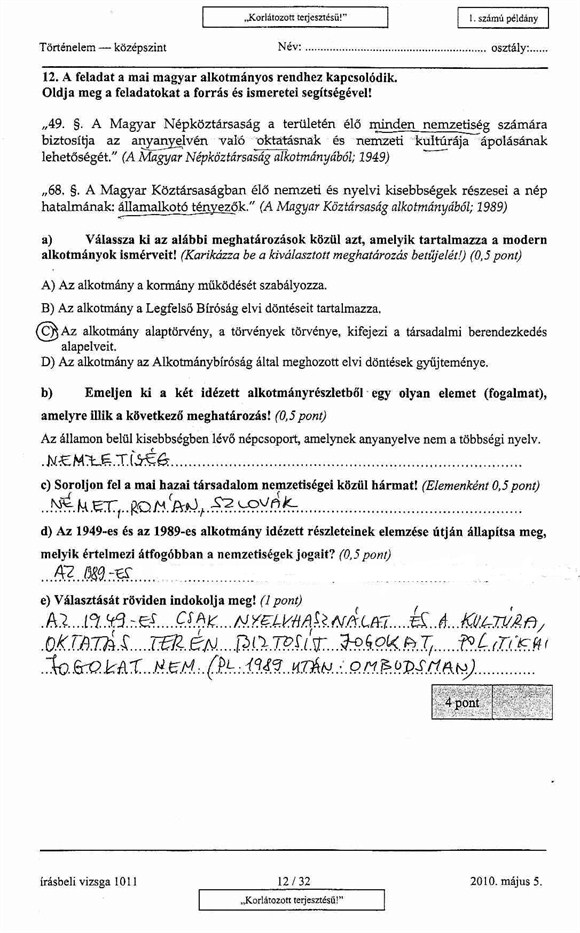 „Korlátozott terjesztésű!”
1. számú példány
Történelem — középszint Név: ............................................................ osztály:......
12. A feladat a mai magyar alkotmányos rendhez kapcsolódik.
Oldja meg a feladatokat a forrás és ismeretei segítségével!
„49. §. A Magyar Népköztársaság a területén élő minden nemzetiség számára
biztosítja az anyanyelvén való oktatásnak és nemzeti kultúrája ápolásának
lehetőségét.” (A Magyar Népköztársaság alkotmányából; 1949)
„68. §. A Magyar Köztársaságban élő nemzeti és nyelvi kisebbségek részesei a nép
hatalmának: államalkotó tényezők.” (A Magyar Köztársaság alkotmányából; 1989)
a) Válassza ki az alábbi meghatározások közül azt, amelyik tartalmazza a modern
alkotmányok ismérveit! (Karikázza be a kiválasztott meghatározás betűjelét!) (0,5 pont)
A) Az alkotmány a kormány működését szabályozza.
B) Az alkotmány a Legfelső Bíróság elvi döntéseit tartalmazza.
C) Az alkotmány alaptörvény, a törvények törvénye, kifejezi a társadalmi berendezkedés
alapelveit.
D) Az alkotmány az Alkotmánybíróság által meghozott elvi döntések gyűjteménye.
b) Emeljen ki a két idézett alkotmányrészletből egy olyan elemet (fogalmat),
amelyre illik a következő meghatározás! (0,5 pont)
Az államon belül kisebbségben lévő népcsoport, amelynek anyanyelve nem a többségi nyelv.
NEMZETISÉG
c) Soroljon fel a mai hazai társadalom nemzetiségei közül hármat! (Elemenként 0,5 pont)
NÉMET, ROMÁN, SZLOVÁK
d) Az 1949-es és az 1989-es alkotmány idézett részleteinek elemzése útján állapítsa meg,
melyik értelmezi átfogóbban a nemzetiségek jogait? (0,5 pont)
AZ 1989-ES
e) Választását röviden indokolja meg! (1 pont)
AZ 1949-ES CSAK NYELVHASZNÁLAT ÉS A KULTÚRA,
OKTATÁS TERÉN BIZTOSÍT JOGOKAT, POLITIKAI
JOGOKAT NEM. (PL. 1989 UTÁN: OMBUDSMAN)
4 pont
írásbeli vizsga 1011 12 / 32 2010. május 5.
„Korlátozott terjesztésű!”